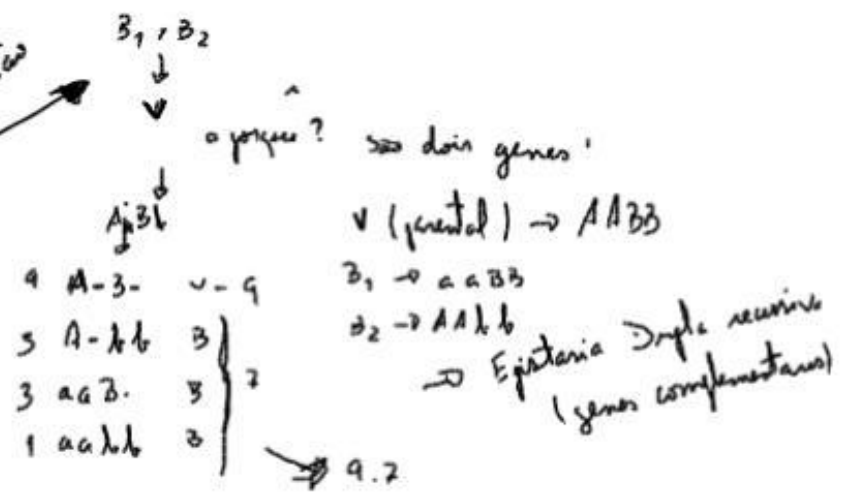 B₁ , B₂
↓
V
o porquê? são dois genes!
↓
AaBb
V (parental) → AABB
9 A-B- V - 9
B₁ → aaBB
3 A-bb B
B₂ → AAbb
3 aaB- B } 7
→ Epistasia Dupla recessiva
(genes complementares)
1 aabb B
→ 9:7